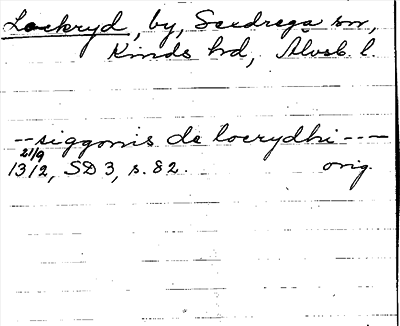 Lockryd, by, Seedrega sn,
Kinds hd, Älvsb. l.
-- siggonis de locrydhi ----
21/9
1312, SD 3, s. 82. orig.